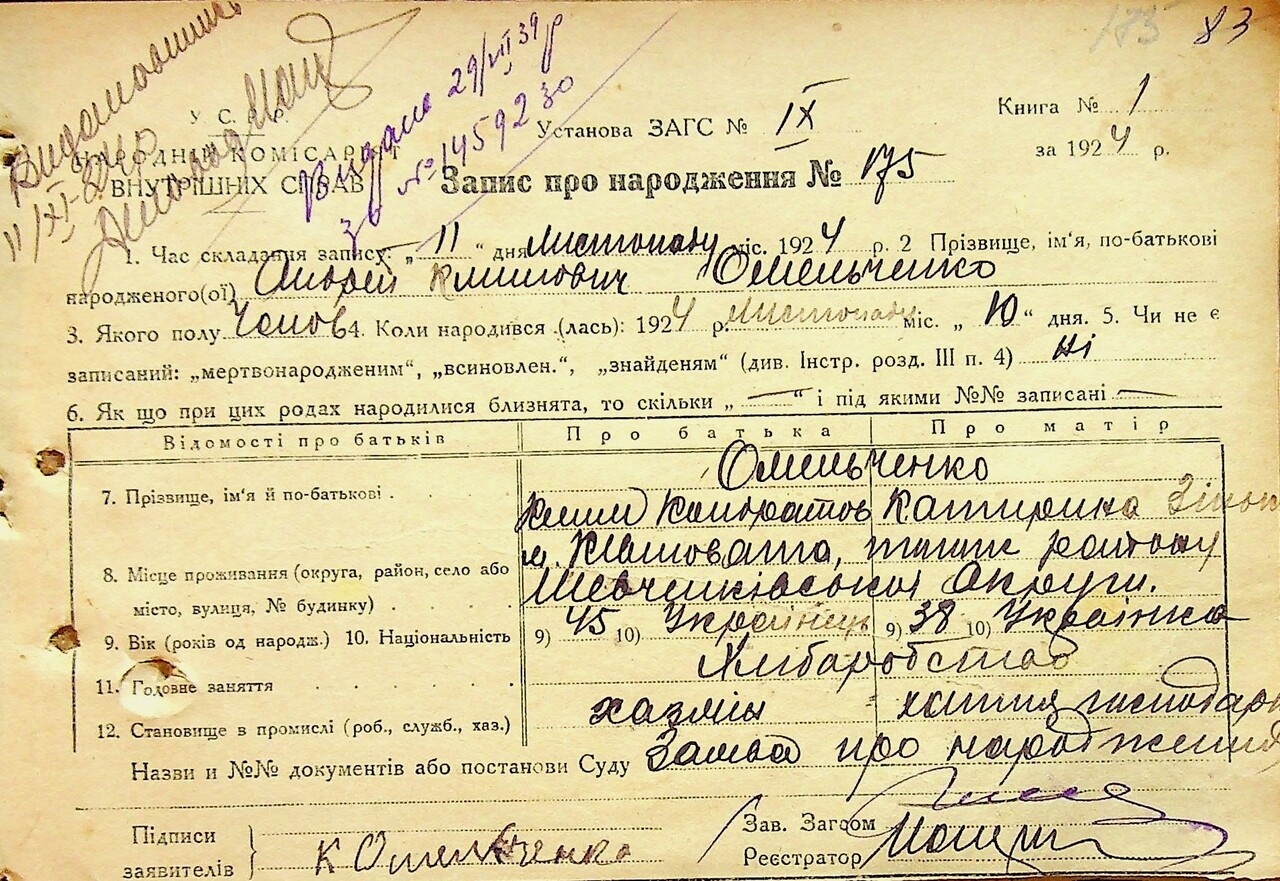 175 83
У. С. Р.
НАРОДНИЙ КОМІСАРІЯТ
ВНУТРІШНІХ СПРАВ
Видано 29/VII 39 р
за № 1459230
11/XI
Установа ЗАГС № IX
Книга № 1
за 1924 р.
Запис про народження № 175
1. Час складання запису: „ 11 “ дня Листопаду міс. 1924 р. 2 Прізвище, ім'я, по-батькові
народженого(ої) Андрей Климович Омельченко
3. Якого полу Чолов 4. Коли народився (лась): 1924 р. Листопаду міс. „ 10 “ дня. 5. Чи не є
записаний: „мертвонародженим“, „всиновлен.“, „знайденям“ (див. Інстр. розд. III п. 4) Ні
6. Як що при цих родах народилися близнята, то скільки „ — “ і під якими №№ записані —
Відомості про батьків Про батька Про матір
Омельченко
7. Прізвище, ім'я й по-батькові . Клим Кондратов Катирина Зінов
8. Місце проживання (округа, район, село або м. Кишовата, району
місто, вулиця, № будинку) . Шевченківської Округи.
9. Вік (років од народж.) 10. Національність 9) 45 10) Українець 9) 38 10) Українка
11. Головне заняття Хлиборобство
12. Становище в промислі (роб., служб., хаз.) хазяін хатня господар
Назви и №№ документів або постанови Суду Заява про народження
Підписи
заявителів } К Омельченко
Зав. Загсом
Реєстратор